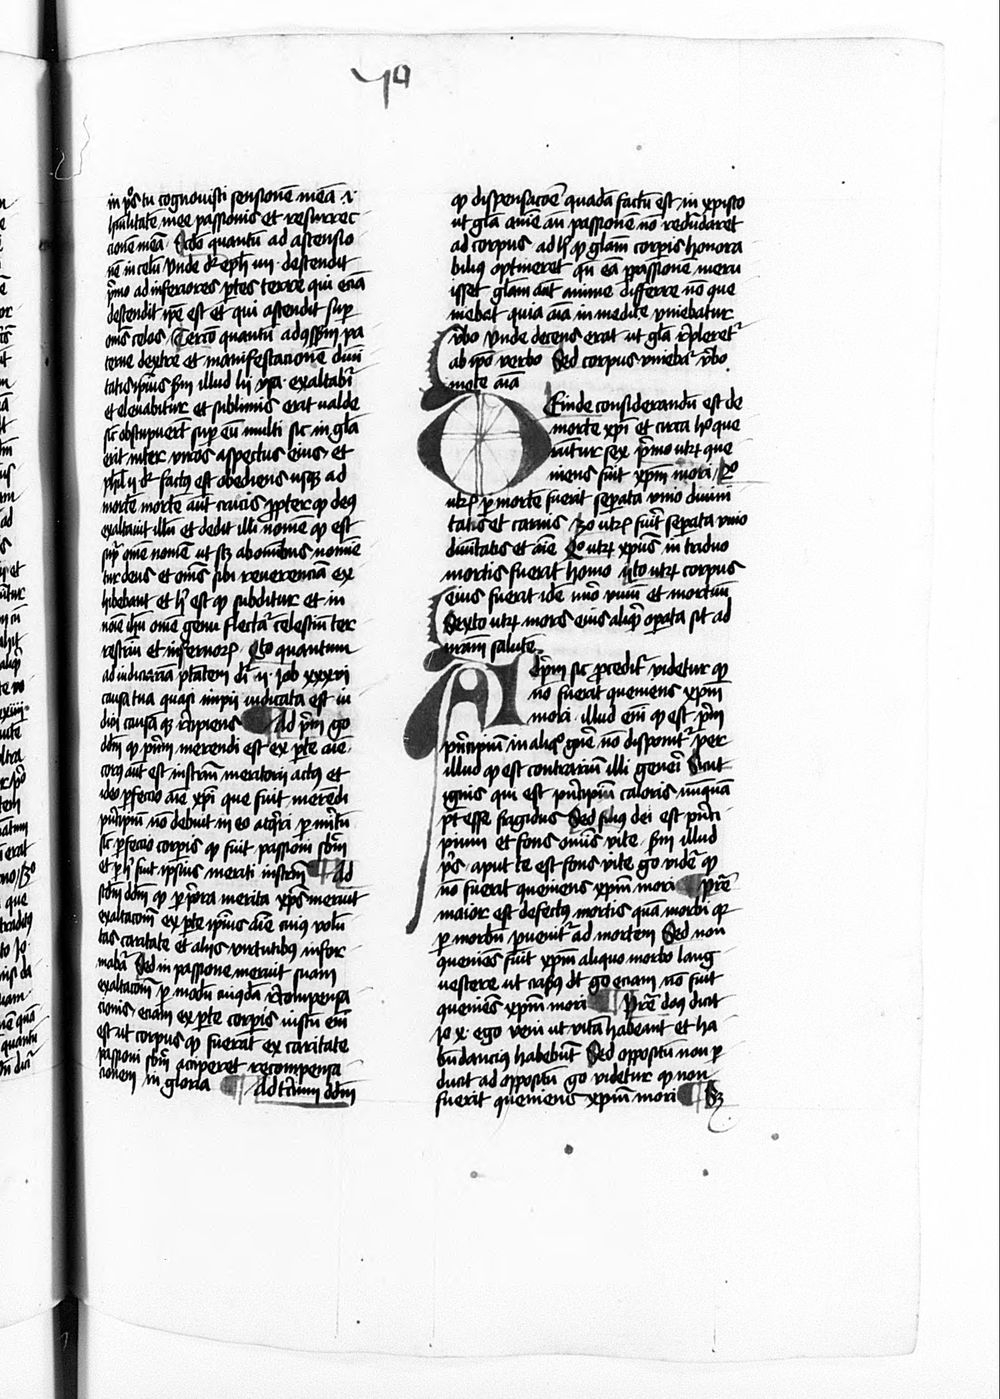 in ps tu cognouisti sensionē meā i
humilitatē mee passionis et resurrec
cionem meā Scdo quantū ad ascensio
nē in celū Vnde dr eph iiii descendit
pmo ad inferiores ptes terre qui eciā
descendit ipē est et qui ascendit sup
omīs celos Tercō quantū ad 9sessum pa
terne dextre et manifestacionē diui
tatis ipīus sm illud lii ysa exaltabit
et eleuabitur et sublimis erit ualde
sic obstupuert sup eū multi sic in gla
erit inter viros aspectus eius et
phil ii dr factus est obediens usqz ad
mortē mortē aut crucis ppter qd deus
exaltauit illū et dedit illi nomē qd est
sup omē nomen ut scz ab omībus nomie
tur deus et omīs sibi reuerenciā ex
hibebant et h est qd subditur et in
noīe ihu omē genu flectatur celestiū ter
restriū et infernorz Qto quantum
ad iudiciariā ptatem dr ii Job xxxvi
causa tua quasi impii iudicata est iu
diciū causā qz recipiens Ad pm go
ddm qd pncm merendi est ex pte aīe
corpus aut est instrm meritorii actus et
ideo pfeccio aīe xpi que fuit merēdi
pncipiū nō debuit in eo acqri p meritū
sic pfeccio corpis qd fuit passioni sbm
et p h fuit ipsius meriti instrm Ad
scdm ddm qd p pora merita xps meruit
exaltacionē ex pte ipīus aīe cuius volū
tas caritate et aliis virtutibus infor
mabat Sed in passione meruit suam
exaltacionē p modū cuiusdā recompensa
cionis eciam ex pte corpis iustū em
est ut corpus qd fuerat ex caritate
passioni sbm acciperet recompensa
cionem in gloria Ad tcium ddm
40
qd dispensacōe quadā factū est in xpisto
ut gla aīe an passionē nō redūdaret
ad corpus ad h qd glam corpis honora
bilius optineret qn eā p passionē meru
isset glam aut anime differre nō que
niebat quia aīa in mediate vniebatur
vbo vnde decens erat ut gla repleretur
ab ipo verbo Sed corpus vniebatur vbo
mediāte aīa
Deinde considerandū est de
morte xpi et circa hoc que
runtur sex pmo utrz que
niens fuit xpm mori 2o
utrz p mortē fuerit sepata vnio diuini
tatis et carnis 3o utrz fuit sepata vnio
diuinitatis et aīe 4o utrz xpus in triduo
mortis fuerit homo qto utrz corpus
eius fuerit idē nuo viuū et mortuū
Sexto utrz mors eius aliqd opata sit ad
nram salutē
Ad pm sic pceditur videtur qd
nō fuerit queniens xpm
mori illud em qd est pm
pncipium in aliquo gnē nō disponitur per
illud qd est contrarium illi generi Sicut
ignis qui est pncipiū caloris nūquā
pt esse frigidus Sed filius dei est pnci
pium et fons omīs vite sm illud
ps aput te est fons vite go videtur qd
nō fuerit queniens xpm mori Pree
maior est defectus mortis quā morbi qz
p morbū puenitur ad mortem Sed non
queniēs fuit xpm aliquo morbo lang
uescere ut crisus dt go eciam nō fuit
queniēs xpm mori Pree dns dicit
Jo x ego veni ut vitā habeant et ha
būdancius habebūt Sed oppositū non p
ducit ad oppositū go videtur qd non
fuerit queniens xpm mori Sz